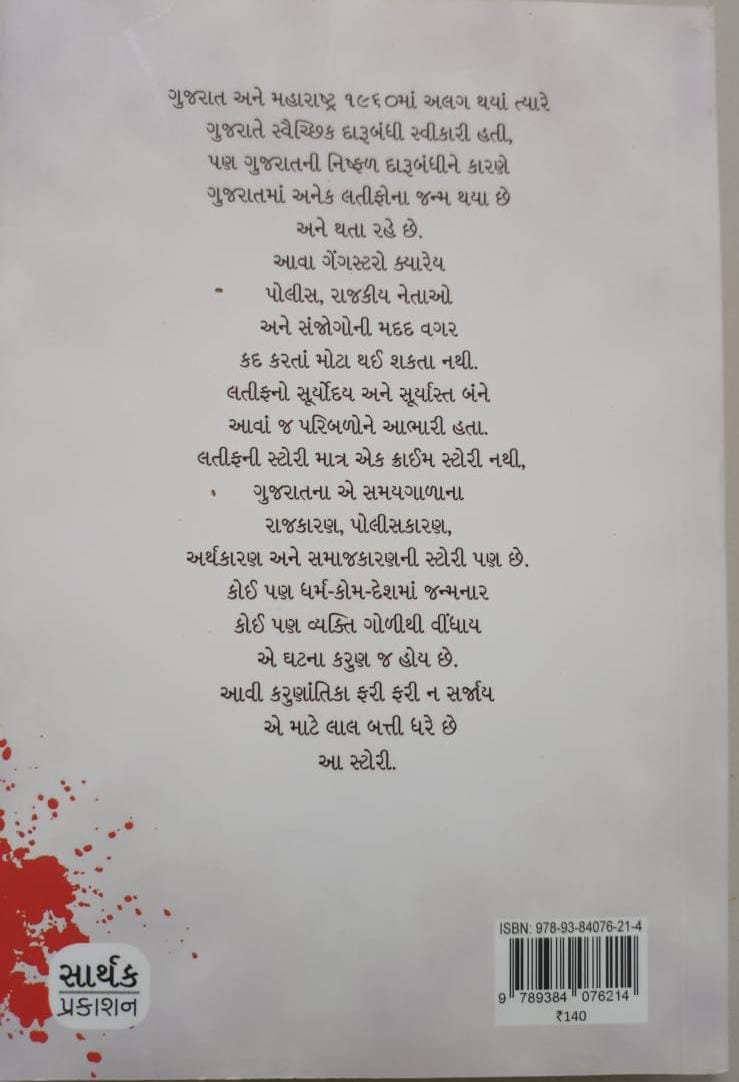 ગુજરાત અને મહારાષ્ટ્ર ૧૯૬૦માં અલગ થયાં ત્યારે
ગુજરાતે સ્વૈચ્છિક દારૂબંધી સ્વીકારી હતી,
પણ ગુજરાતની નિષ્ફળ દારૂબંધીને કારણે
ગુજરાતમાં અનેક લતીફોના જન્મ થયા છે
અને થતા રહે છે.
આવા ગેંગસ્ટરો ક્યારેય
પોલીસ, રાજકીય નેતાઓ
અને સંજોગોની મદદ વગર
કદ કરતાં મોટા થઈ શકતા નથી.
લતીફનો સૂર્યોદય અને સૂર્યાસ્ત બંને
આવાં જ પરિબળોને આભારી હતા.
લતીફની સ્ટોરી માત્ર એક ક્રાઈમ સ્ટોરી નથી,
ગુજરાતના એ સમયગાળાના
રાજકારણ, પોલીસકારણ,
અર્થકારણ અને સમાજકારણની સ્ટોરી પણ છે.
કોઈ પણ ધર્મ-કોમ-દેશમાં જન્મનાર
કોઈ પણ વ્યક્તિ ગોળીથી વીંધાય
એ ઘટના કરુણ જ હોય છે.
આવી કરુણાંતિકા ફરી ફરી ન સર્જાય
એ માટે લાલ બત્તી ધરે છે
આ સ્ટોરી.
ISBN: 978-93-84076-21-4
9 789384 076214
₹140
સાર્થક
પ્રકાશન